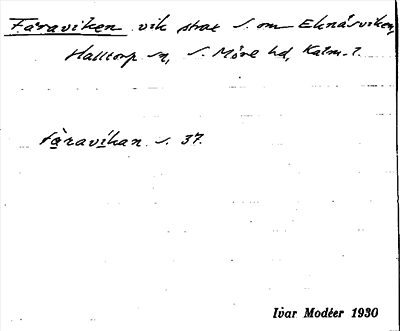 Fåraviken vik strax S. om Eknäsviken,
Halltorp sn, S. Möre hd, Kalm. l.
fàravikan s. 37.
Ivar Modéer 1930